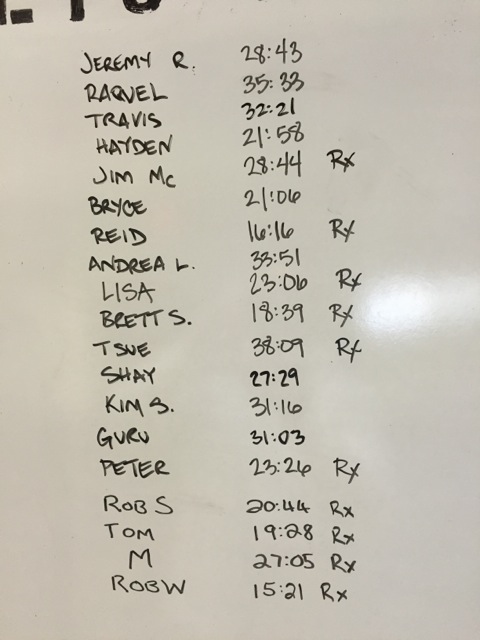 JEREMY R. 28:43
RAQUEL 35:33
TRAVIS 32:21
HAYDEN 21:58
JIM Mc 28:44 Rx
BRYCE 21:06
REID 16:16 Rx
ANDREA L. 33:51
LISA 23:06 Rx
BRETT S. 18:39 Rx
TSUE 38:09 Rx
SHAY 27:29
KIM S. 31:16
GURU 31:03
PETER 23:26 Rx
ROB S 20:44 Rx
TOM 19:28 Rx
M 27:05 Rx
ROB W 15:21 Rx